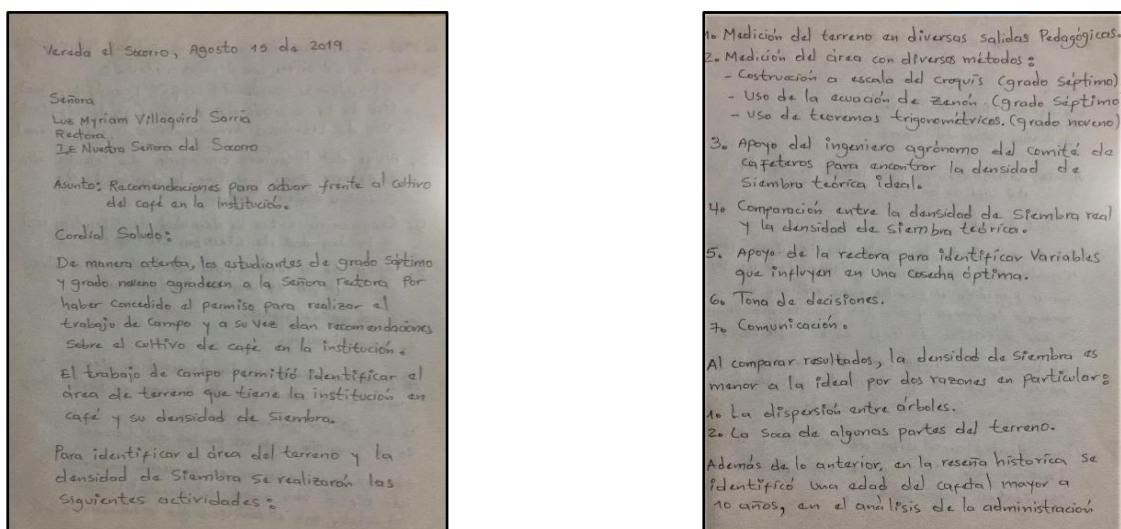 Vereda el Socorro, Agosto 15 de 2019
Señora
Luz Myriam Villaquirá Sarria
Rectora
I.E Nuestra Señora del Socorro
Asunto: Recomendaciones para actuar frente al cultivo
del café en la institución.
Cordial Saludo:
De manera atenta, los estudiantes de grado Séptimo
y grado noveno agradecen a la Señora rectora Por
haber concedido el permiso para realizar el
trabajo de campo y a su vez dan recomendaciones
Sobre el cultivo de café en la institución.
El trabajo de campo permitió identificar el
área de terreno que tiene la institución en
café y su densidad de Siembra.
Para identificar el área del terreno y la
densidad de Siembra se realizarón las
Siguientes actividades:
1. Medición del terreno en diversas Salidas Pedagógicas.
2. Medición del área con diversos métodos:
- Costrucción a escala del croquis (grado Séptimo)
- Uso de la ecuación de Zenón (grado Séptimo
- Uso de teoremas trigonométricos. (grado noveno)
3. Apoyo del ingeniero agrónomo del comité de
cafeteros para encontrar la densidad de
Siembra teórica ideal.
4. Comparación entre la densidad de Siembra real
y la densidad de Siembra teórica.
5. Apoyo de la rectora para identificar Variables
que influyen en una cosecha óptima.
6. Toma de decisiones.
7. Comunicación.
Al comparar resultados, la densidad de Siembra es
menor a la ideal por dos razones en particular:
1. La dispersión entre árboles.
2. La Soca de algunas partes del terreno.
Además de lo anterior, en la reseña historica Se
identificó una edad del cafetal mayor a
10 años, en el análisis de la administración